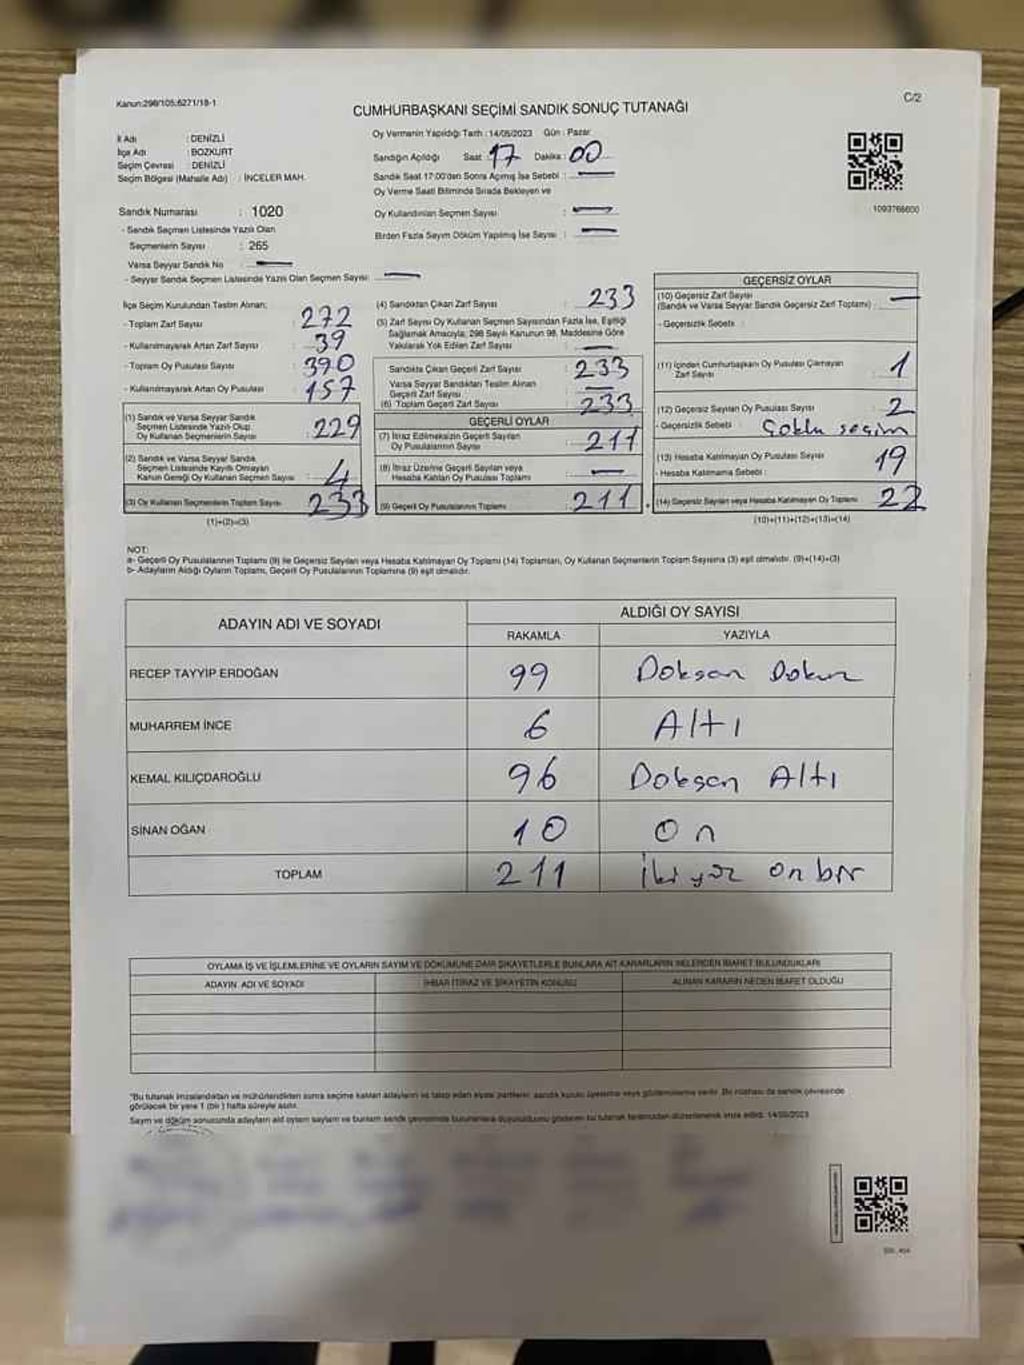 Kanun:298/105;6271/18-1
C/2
CUMHURBAŞKANI SEÇİMİ SANDIK SONUÇ TUTANAĞI
İl Adı : DENİZLİ
İlçe Adı : BOZKURT
Seçim Çevresi : DENİZLİ
Seçim Bölgesi (Mahalle Adı) : İNCELER MAH.
Oy Vermenin Yapıldığı Tarih : 14/05/2023 Gün : Pazar
Sandığın Açıldığı Saat : 17 Dakika : 00
Sandık Saat 17:00'den Sonra Açılmış İse Sebebi : —
Oy Verme Saati Bitiminde Sırada Bekleyen ve
Oy Kullandırılan Seçmen Sayısı : —
Birden Fazla Sayım Döküm Yapılmış İse Sayısı : —
1093766600
Sandık Numarası : 1020
- Sandık Seçmen Listesinde Yazılı Olan
Seçmenlerin Sayısı : 265
Varsa Seyyar Sandık No —
- Seyyar Sandık Seçmen Listesinde Yazılı Olan Seçmen Sayısı: —
İlçe Seçim Kurulundan Teslim Alınan;
- Toplam Zarf Sayısı : 272
- Kullanılmayarak Artan Zarf Sayısı : 39
- Toplam Oy Pusulası Sayısı : 390
- Kullanılmayarak Artan Oy Pusulası : 157
(1) Sandık ve Varsa Seyyar Sandık
Seçmen Listesinde Yazılı Olup
Oy Kullanan Seçmenlerin Sayısı : 229
(2) Sandık ve Varsa Seyyar Sandık
Seçmen Listesinde Kayıtlı Olmayan
Kanun Gereği Oy Kullanan Seçmen Sayısı : 4
(3) Oy Kullanan Seçmenlerin Toplam Sayısı : 233
(1)+(2)=(3)
(4) Sandıktan Çıkan Zarf Sayısı : 233
(5) Zarf Sayısı Oy Kullanan Seçmen Sayısından Fazla İse, Eşitliği
Sağlamak Amacıyla; 298 Sayılı Kanunun 98. Maddesine Göre
Yakılarak Yok Edilen Zarf Sayısı : —
Sandıkta Çıkan Geçerli Zarf Sayısı : 233
Varsa Seyyar Sandıktan Teslim Alınan
Geçerli Zarf Sayısı : —
(6) Toplam Geçerli Zarf Sayısı : 233
GEÇERLİ OYLAR
(7) İtiraz Edilmeksizin Geçerli Sayılan
Oy Pusulalarının Sayısı : 211
(8) İtiraz Üzerine Geçerli Sayılan veya
Hesaba Katılan Oy Pusulası Toplamı : —
(9) Geçerli Oy Pusulalarının Toplamı : 211
GEÇERSİZ OYLAR
(10) Geçersiz Zarf Sayısı
(Sandık ve Varsa Seyyar Sandık Geçersiz Zarf Toplamı) : —
- Geçersizlik Sebebi :
(11) İçinden Cumhurbaşkanı Oy Pusulası Çıkmayan
Zarf Sayısı : 1
(12) Geçersiz Sayılan Oy Pusulası Sayısı : 2
- Geçersizlik Sebebi : Çoklu seçim
(13) Hesaba Katılmayan Oy Pusulası Sayısı : 19
- Hesaba Katılmama Sebebi :
(14) Geçersiz Sayılan veya Hesaba Katılmayan Oy Toplamı : 22
(10)+(11)+(12)+(13)=(14)
NOT:
a- Geçerli Oy Pusulalarının Toplamı (9) ile Geçersiz Sayılan veya Hesaba Katılmayan Oy Toplamı (14) Toplamları, Oy Kullanan Seçmenlerin Toplam Sayısına (3) eşit olmalıdır. (9)+(14)=(3)
b- Adayların Aldığı Oyların Toplamı, Geçerli Oy Pusulalarının Toplamına (9) eşit olmalıdır.
ADAYIN ADI VE SOYADI
ALDIĞI OY SAYISI
RAKAMLA YAZIYLA
RECEP TAYYİP ERDOĞAN 99 Doksan Dokuz
MUHARREM İNCE 6 Altı
KEMAL KILIÇDAROĞLU 96 Doksan Altı
SİNAN OĞAN 10 On
TOPLAM 211 İkiyüz on bir
OYLAMA İŞ VE İŞLEMLERİNE VE OYLARIN SAYIM VE DÖKÜMÜNE DAİR ŞİKAYETLERLE BUNLARA AİT KARARLARIN NELERDEN İBARET BULUNDUKLARI
ADAYIN ADI VE SOYADI İHBAR İTİRAZ VE ŞİKAYETİN KONUSU ALINAN KARARIN NEDEN İBARET OLDUĞU
"Bu tutanak imzalandıktan ve mühürlendikten sonra seçime katılan adayların ve talep eden siyasi partilerin sandık kurulu üyelerine veya gözlemcilerine verilir. Bu nüshası da sandık çevresinde
görülecek bir yere 1 (bir) hafta süreyle asılır.
Sayım ve döküm sonucunda adayların aldığı oyların
14/05/2023